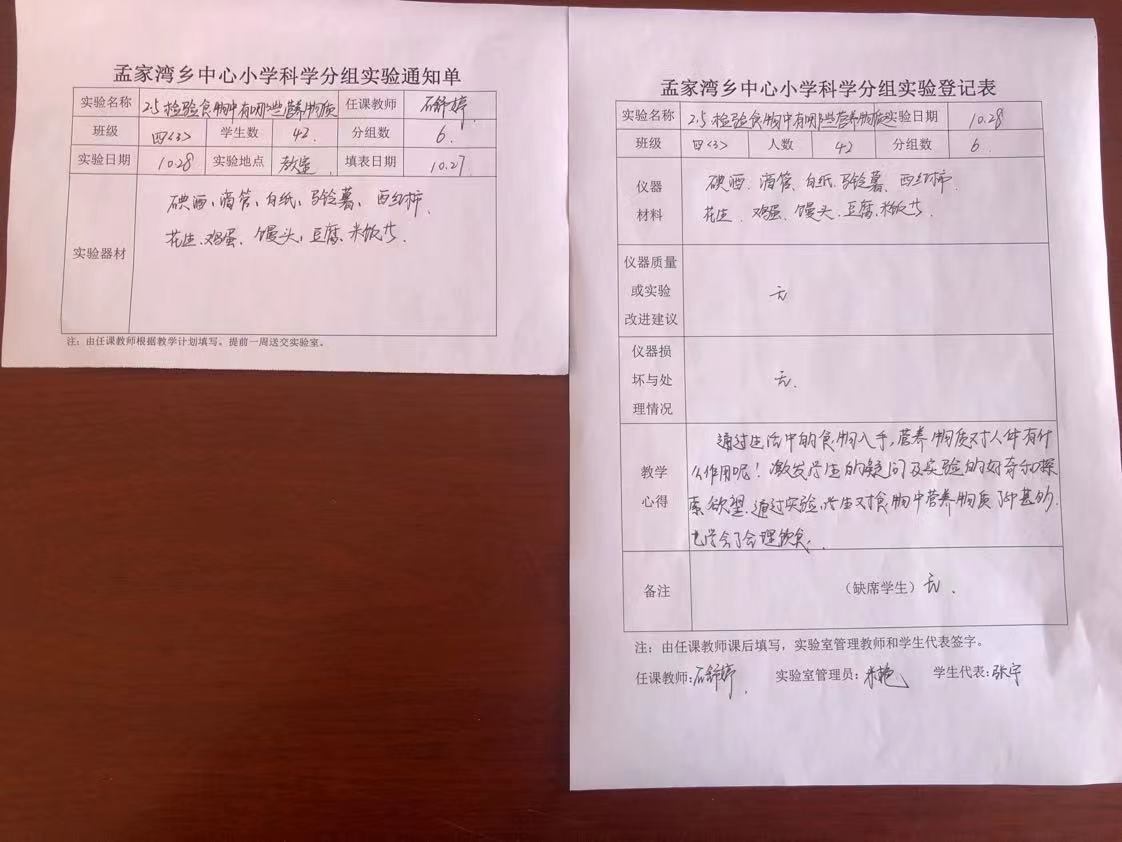 孟家湾乡中心小学科学分组实验通知单
实验名称 2.5检验食物中有哪些营养物质 任课教师 石舒婷
班级 四<3> 学生数 42 分组数 6.
实验日期 10.28 实验地点 填表日期 10.27
实验器材
碘酒、滴管、白纸、马铃薯、西红柿、
花生、鸡蛋、馒头、豆腐、米饭等.
注:由任课教师根据教学计划填写。提前一周送交实验室。
孟家湾乡中心小学科学分组实验登记表
实验名称 2.5检验食物中有哪些营养物质 实验日期 10.28
班级 四<3> 人数 42 分组数 6.
仪器
材料
碘酒、滴管、白纸、马铃薯、西红柿、
花生、鸡蛋、馒头、豆腐、米饭等.
仪器质量
或实验
改进建议
无
仪器损
坏与处
理情况
无.
教学
心得
通过生活中的食物入手,营养物质对人体有什
么作用呢!激发学生的疑问及实验的好奇和探
索欲望.通过实验,学生对食物中营养物质了解甚多,
也学会了合理饮食.
备注 (缺席学生)无.
注:由任课教师课后填写,实验室管理教师和学生代表签字。
任课教师:石舒婷. 实验室管理员: 学生代表:张宇